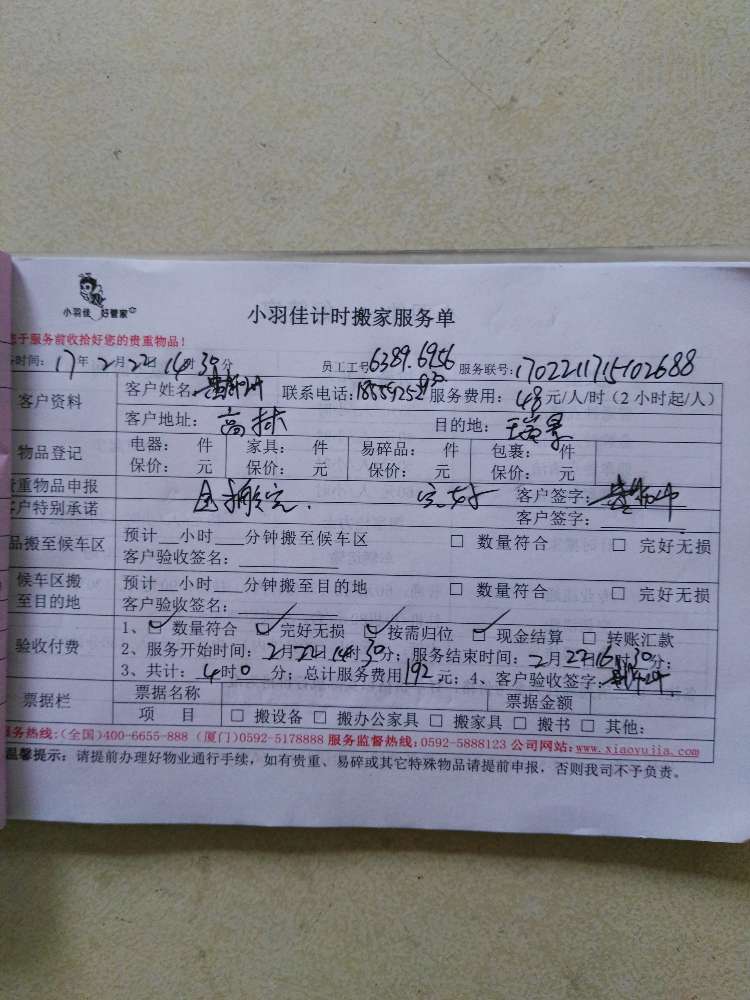 小羽佳 好管家
小羽佳计时搬家服务单
于服务前收拾好您的贵重物品！
时间：17年2月22日14时30分 员工工号6389.6956 服务联号：170221171510 2688
客户资料 客户姓名： 联系电话： 服务费用：48元/人/时（2小时起/人）
客户地址：高林 目的地：
物品登记 电器： 件 家具： 件 易碎品： 件 包裹： 件
保价： 元 保价： 元 保价： 元 保价： 元
重物品申报 已搬完. 完好 客户签字：
客户特别承诺 客户签字：
品搬至候车区 预计__小时___分钟搬至候车区 □ 数量符合 □ 完好无损
客户验收签名：
候车区搬至目的地 预计__小时___分钟搬至目的地 □ 数量符合 □ 完好无损
客户验收签名：
验收付费 1、☑ 数量符合 ☑ 完好无损 ☑ 按需归位 ☑ 现金结算 □ 转账汇款
2、服务开始时间：2月22日14时30分；服务结束时间：2月22日16时30分；
3、共计：4时0分；总计服务费用192元；4、客户验收签字：
票据栏 票据名称 票据金额
项 目 □ 搬设备 □ 搬办公家具 □ 搬家具 □ 搬书 □ 其他：
服务热线：(全国)400-6655-888 (厦门)0592-5178888 服务监督热线：0592-5888123 公司网站：www.xiaoyujia.com
温馨提示：请提前办理好物业通行手续，如有贵重、易碎或其它特殊物品请提前申报，否则我司不予负责。